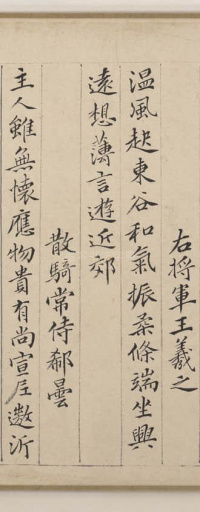 右将軍王羲之
温風起東谷和氣振柔條端坐興
遠想薄言遊近郊
散騎常侍郗曇
主人雖無懷應物貴有尚宣尼遨沂